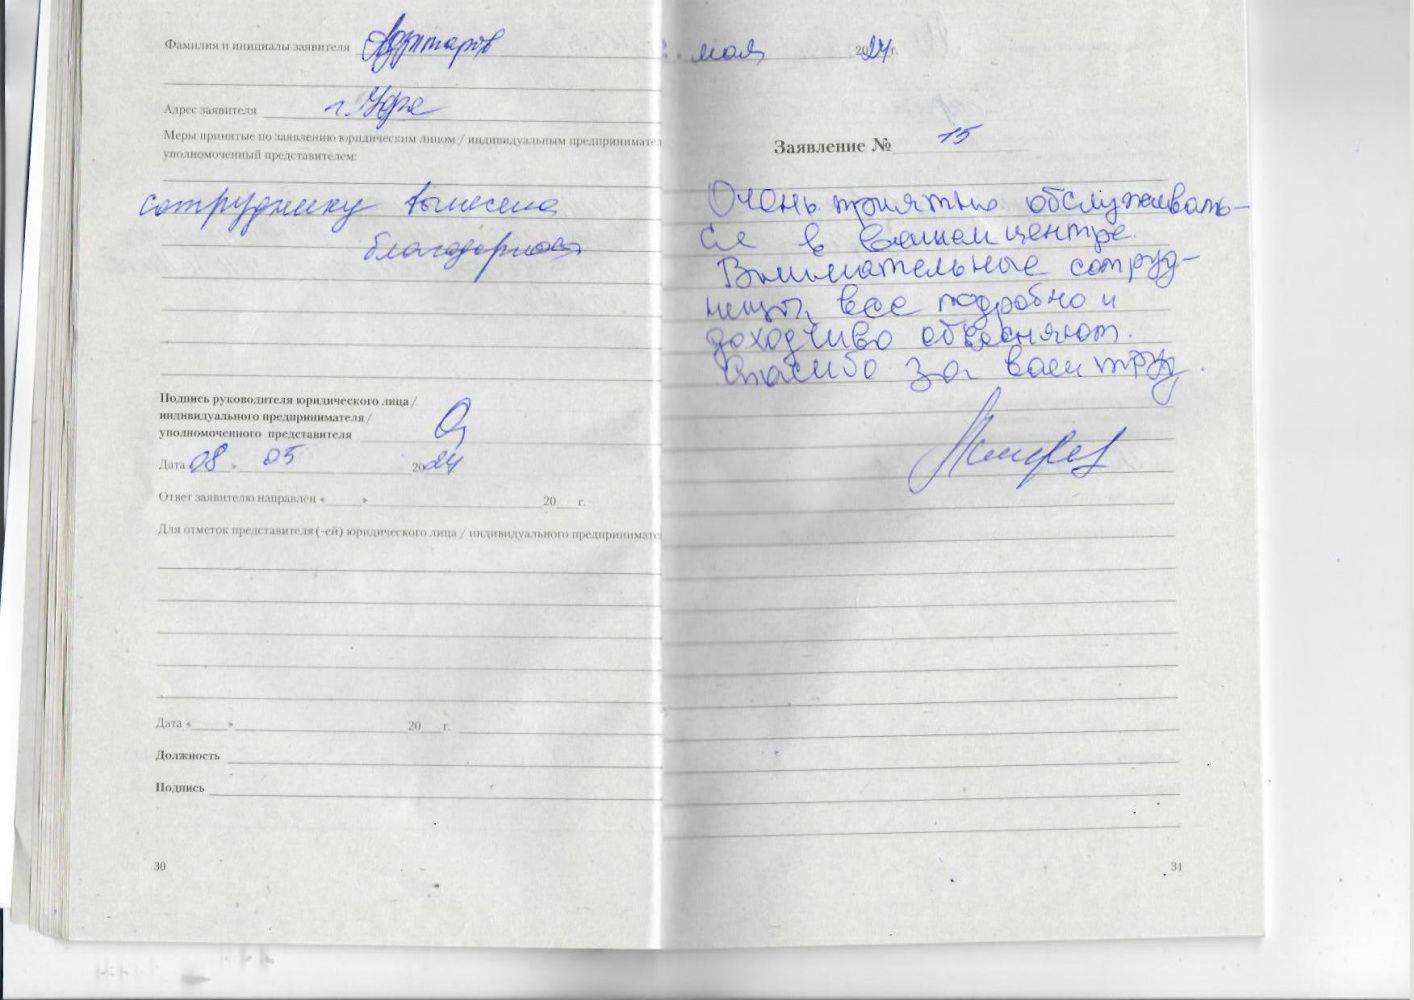 Фамилия и инициалы заявителя
Адрес заявителя г. Уфа
Меры принятые по заявлению юридическим лицом / индивидуальным предпринимател
уполномоченный представителем:
сотруднику вынесена
благодарность
Подпись руководителя юридического лица /
индивидуального предпринимателя /
уполномоченного представителя
Дата 08. 05 2024
Ответ заявителю направлен « » 20 г.
Для отметок представителя (-ей) юридического лица / индивидуального предпринимате
Дата « » 20 г.
Должность
Подпись
30
мая 2024г.
Заявление № 15
Очень приятно обслуживать-
ся в вашем центре.
Внимательные сотруд-
ники, все подробно и
доходчиво объясняют.
Спасибо за ваш труд.
31